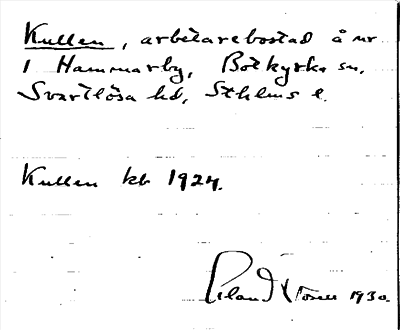 Kullen, arbetarebostad å nr
1 Hammarby, Botkyrka sn.
Svartlösa hd, Sthlms l.
Kullen kb 1924.
1930.